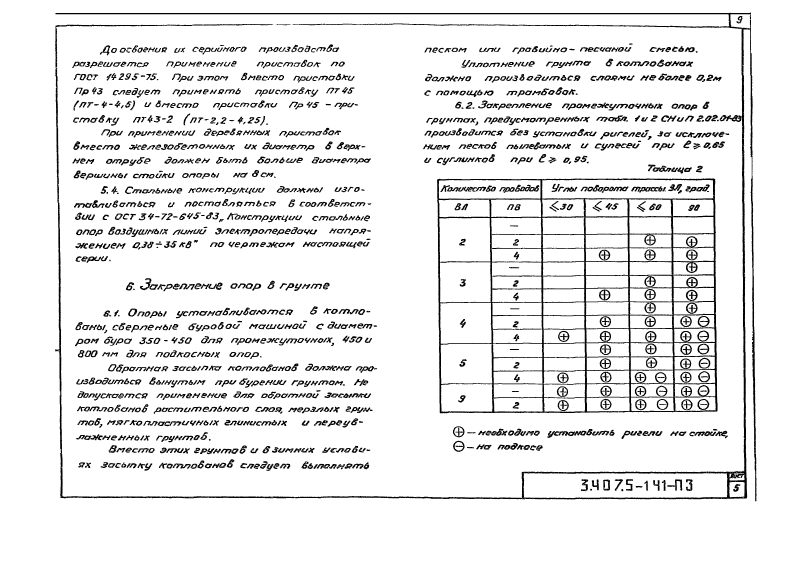 9
До освоения их серийного производства
разрешается применение приставок по
ГОСТ 14295-75. При этом вместо приставки
Пр 43 следует применять приставку ПТ 45
(ПТ-4-4,5) и вместо приставки Пр 45 - при-
ставку ПТ 43-2 (ПТ-2,2-4,25).
При применении деревянных приставок
вместо железобетонных их диаметр в верх-
нем отрубе должен быть больше диаметра
вершины стойки опоры на 8 см.
5.4. Стальные конструкции должны изго-
тавливаться и поставляться в соответст-
вии с ОСТ 34-72-645-83 „Конструкции стальные
опор воздушных линий электропередачи напря-
жением 0,38÷35 кВ" по чертежам настоящей
серии.
6. Закрепление опор в грунте
6.1. Опоры устанавливаются в котло-
ваны, сверленые буровой машиной с диамет-
ром бура 350-450 для промежуточных, 450 и
800 мм для подкосных опор.
Обратная засыпка котлованов должна про-
изводиться вынутым при бурении грунтом. Не
допускается применение для обратной засыпки
котлованов растительного слоя, мерзлых грун-
тов, мягкопластичных глинистых и переув-
лажненных грунтов.
Вместо этих грунтов и в зимних услови-
ях засыпку котлованов следует выполнять
песком или гравийно-песчаной смесью.
Уплотнение грунта в котлованах
должно производиться слоями не более 0,2м
с помощью трамбовок.
6.2. Закрепление промежуточных опор в
грунтах, предусмотренных табл. 1 и 2 СНиП 2.02.01-83
производится без установки ригелей, за исключе-
нием песков пылеватых и супесей при ℓ ⩾ 0,65
и суглинков при ℓ ⩾ 0,95.
Таблица 2
Количество проводов Углы поворота трассы ВЛ, град.
ВЛ ПВ ⩽30 ⩽45 ⩽60 90
—
2 2 ⊕ ⊕
4 ⊕ ⊕ ⊕
— ⊕
3 2 ⊕ ⊕
4 ⊕ ⊕ ⊕
— ⊕ ⊕
4 2 ⊕ ⊕ ⊕ ⊖
4 ⊕ ⊕ ⊕ ⊕ ⊖
— ⊕ ⊕ ⊕
5 2 ⊕ ⊕ ⊕ ⊖
4 ⊕ ⊕ ⊕ ⊖ ⊕ ⊖
9 — ⊕ ⊕ ⊕ ⊖ ⊕ ⊖
2 ⊕ ⊕ ⊕ ⊖ ⊕ ⊖
⊕ — необходимо установить ригели на стойке,
⊖ — на подкосе
3.407.5-141-ПЗ
Лист
5